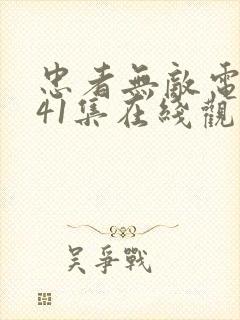 忠者無敵電
41集在綫觀
吴爭戰